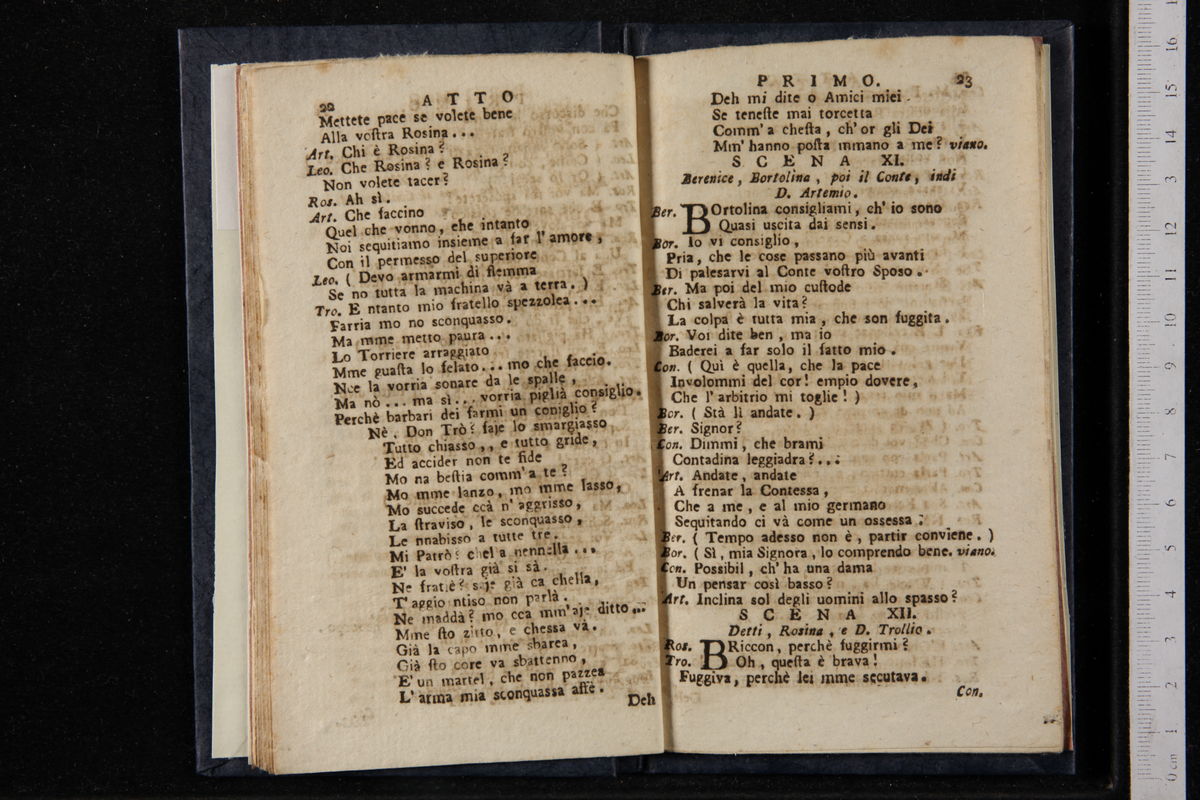 22 ATTO
Mettete pace se volete bene
Alla vostra Rosina...
Art. Chi è Rosina?
Leo. Che Rosina? e Rosina?
Non volete tacer?
Ros. Ah sì.
Art. Che faccino
Quel che vonno, ehe intanto
Noi sequitiamo insieme a far l'amore,
Con il permesso del superiore
Leo. ( Devo armarmi di flemma
Se no tutta la machina và a terra. )
Tro. E ntanto mio fratello spezzolea...
Farria mo no sconquasso.
Ma mme metto paura...
Lo Torriere arraggiato
Mme guasta lo felato... mo che faccio.
Nce la vorria sonare da le spalle,
Ma nò... ma sì... vorria piglià consiglio.
Perchè barbari dei farmi un coniglio?
Nè. Don Trò? faje lo smargiasso
Tutto chiasso,, e tutto gride,
Ed accider non te fide
Mo na bestia comm'a te?
Mo mme lanzo, mo mme lasso,
Mo succede ccà n'aggrisso,
La straviso, le sconquasso,
Le nnabisso a tutte tre.
Mi Patrò? chel'a nennella...
E' la vostra già si sà.
Ne fratiè? saje già ca chella,
T'aggio ntiso non parlà.
Ne maddà? mo cca mm'aje ditto...
Mme sto zitto, e chessa và.
Già la capo mme sbarea,
Già sto core va sbattenno,
E' un martel, che non pazzea
L'arma mia sconquassa affè.
Deh
PRIMO. 23
Deh mi dite o Amici miei
Se teneste mai torcetta
Comm'a chesta, ch'or gli Dei
Mm'hanno posta mmano a me? viano.
SCENA XI.
Berenice, Bortolina, poi il Conte, indi
D. Artemio.
Ber. BOrtolina consigliami, ch'io sono
Quasi uscita dai sensi.
Bor. Io vi consiglio,
Pria, che le cose passano più avanti
Di palesarvi al Conte vostro Sposo.
Ber. Ma poi del mio custode
Chi salverà la vita?
La colpa è tutta mia, che son fuggita.
Bor. Voi dite ben, ma io
Baderei a far solo il fatto mio.
Con. ( Quì è quella, che la pace
Involommi del cor! empio dovere,
Che l'arbitrio mi toglie! )
Bor. ( Stà lì andate. )
Ber. Signor?
Con. Dimmi, che brami
Contadina leggiadra?...
Art. Andate, andate
A frenar la Contessa,
Che a me, e al mio germano
Sequitando ci và come un ossessa.
Ber. ( Tempo adesso non è, partir conviene. )
Bor. ( Sì, mia Signora, lo comprendo bene. viano.
Con. Possibil, ch'ha una dama
Un pensar così basso?
Art. Inclina sol degli uomini allo spasso?
SCENA XII.
Detti, Rosina, e D. Trollio.
Ros. BRiccon, perchè fuggirmi?
Tro. Oh, questa è brava!
Fuggiva, perchè lei mme secutava.
Con.
0 cm 1 2 3 4 5 6 7 8 9 10 11 12 13 14 15 16